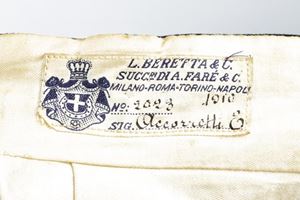 L. BERETTA & C.
SUCCRI DI A. FARÉ & C.
MILANO-ROMA-TORINO-NAPOLI
No. 2023 1910
SIG. Accorretti E